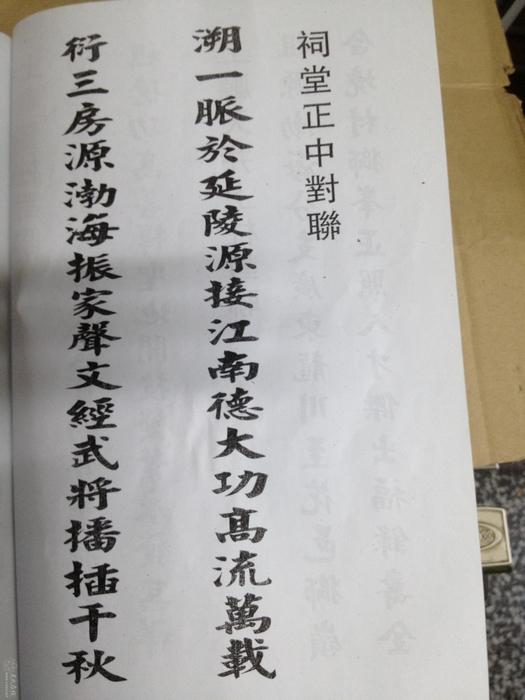 祠堂正中對聯
溯一脈於延陵源接江南德大功高流萬載
衍三房源渤海振家聲文經武將播插千秋